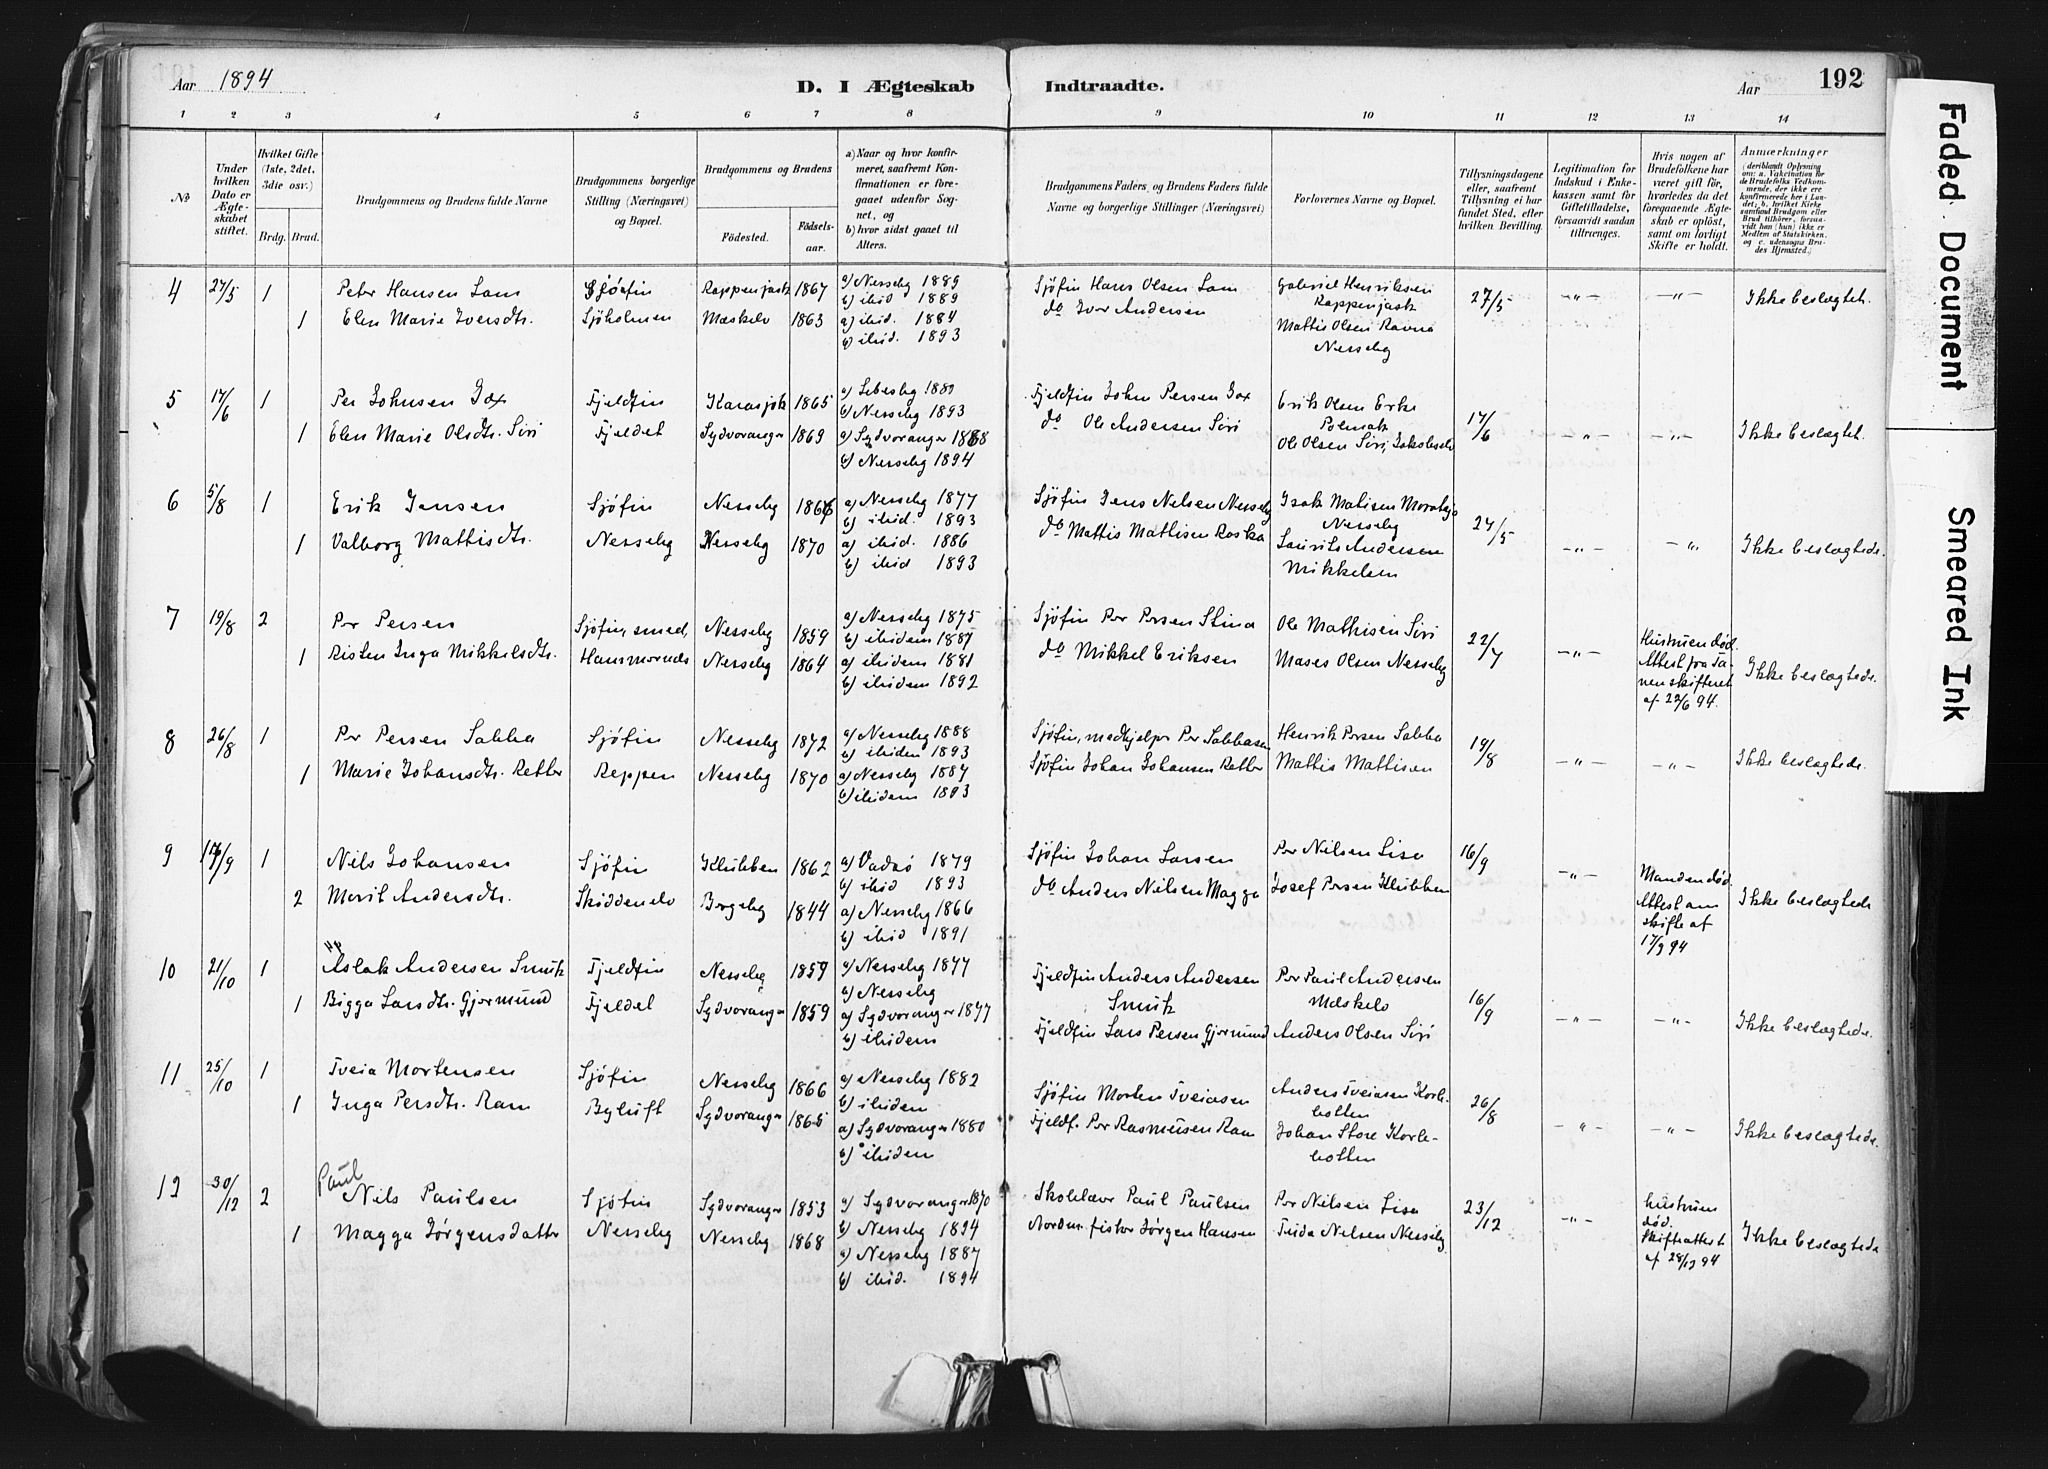 Aar 1894
D. I Ægteskab Indtraadte.
Aar 192
1 2 3 4 5 6 7 8 9 10 11 12 13 14
№
Under hvilken Dato er Ægteskabet stiftet.
Hvilket Gifte (1ste, 2det, 3die osv.)
Brdg. Brud.
Brudgommens og Brudens fulde Navne
Brudgommens borgerlige Stilling (Næringsvei) og Bopæl.
Brudgommens og Brudens
Fødested. Fødselsaar.
a) Naar og hvor konfirmeret, saafremt Konfirmationen er foregaaet udenfor Sognet, og
b) hvor sidst gaaet til Alters.
Brudgommens Faders, og Brudens Faders fulde Navne og borgerlige Stillinger (Næringsvei)
Forlovernes Navne og Bopæl.
Tillysningsdagene eller, saafremt Tillysning ei har fundet Sted, efter hvilken Bevilling.
Legitimation for Indskud i Enkekassen samt for Giftetilladelse, forsaavidt saadan tiltrænges.
Hvis nogen af Brudefolkene har været gift før, hvorledes da det foregaaende Ægteskab er opløst, samt om lovligt Skifte er holdt.
Anmærkninger (deriblandt Oplysning om: a. Vakcination for de Brudefolks Vedkommende, der ikke ere konfirmerede her i Landet; b. hvilket Kirkesamfund Brudgom eller Brud tilhører, forsaavidt han (hun) ikke er Medlem af Statskirken, og c. udensogns Brudes Hjemsted.)
4 27/5 1 Peter Hansen Lam Sjöfin Rappenjask 1867 a) Nesseby 1885 b) ibid 1889 Sjöfin Hans Olsen Lam Gabriel Henriksen Rappenjask 27/5 -"- -"- Ikke beslægtet.
1 Elen Marie Iversdtr. Sjöholmen Mæskelv 1863 a) ibid. 1884 b) ibid. 1893 do Iver Andersen Mattis Olsen Ravna Nesseby
5 17/6 1 Per Johnsen Jox Fjeldfin Karasjok 1865 a) Lebesby 1881 b) Nesseby 1893 Fjeldfin John Persen Jox Erik Olsen Erke Polmak 17/6 -"- -"- Ikke beslægtet.
1 Elen Marie Olsdtr. Siri Fjeldet Sydvaranger 1869 a) Sydvaranger 1888 b) Nesseby 1894 do Ole Andersen Siri Ole Olsen Siri, Jakobselv
6 5/8 1 Erik Jensen Sjöfin Nesseby a) Nesseby 1877 b) ibid. 1893 Sjöfin Jens Nilsen Nesseby Isak Matisen Nesseby 27/5 -"- -"- Ikke beslægtede.
1 Valborg Mattisdtr. Nesseby Nesseby 1870 a) ibid. 1886 b) ibid 1893 do Mattis Mathisen Roska Laurits Andersen Mikkelsen
7 19/8 2 Per Persen Sjöfin, smed, Nesseby 1859 a) Nesseby 1875 b) ibidem 1887 Sjöfin Per Persen Stina Ole Mathisen Siri 22/7 -"- Hustruen död. Attest fra Tanenskifteret af 22/6 94. Ikke beslægtede.
1 Risten Inga Mikkelsdtr. Hansmornæs Nesseby 1864 a) ibidem 1881 b) ibidem 1892 do Mikkel Eriksen Moses Olsen Nesseby
8 26/8 1 Per Persen Sabba Sjöfin Nesseby 1872 a) Nesseby 1888 b) ibidem 1893 Sjöfin, medhjelper Per Sabbasen Henrik Persen Sabba 19/8 -"- -"- Ikke beslægtede.
1 Marie Johansdtr. Retter Reppen Nesseby 1870 a) Nesseby 1887 b) ibidem 1893 Sjöfin Johan Johansen Retter Mattis Mattisen
9 /9 1 Nils Johansen Sjöfin Klubben 1862 a) Vadsö 1879 b) ibid 1893 Sjöfin Johan Larsen Per Nilsen Lisa 16/9 -"- Manden död. Attest om skifte af 17/9 94 Ikke beslægtede
2 Marit Andersdtr. Skiddenelv Bergeby 1844 a) Nesseby 1866 b) ibid 1891 do Anders Nilsen Magga Josef Persen Klubben
10 21/10 1 Aslak Andersen Smuk Fjeldfin Nesseby 1859 a) Nesseby 1877 b) Nesseby Fjeldfin Anders Andersen Smuk Per Paul Andersen Mæskelv 16/9 -"- -"- Ikke beslægtede.
1 Bigga Larsdtr. Gjermund Fjeldet Sydvaranger 1859 a) Sydvaranger 1877 b) ibidem Fjeldfin Lars Persen Gjermund Anders Olsen Siri
11 25/10 1 Tveia Mortensen Sjöfin Nesseby 1866 a) Nesseby 1882 b) ibidem Sjöfin Morten Tveiasen Anders Tveiasen Karlebotten 26/8 -"- -"- Ikke beslægtede.
1 Inga Persdtr. Ram Byluft Sydvaranger 1865 a) Sydvaranger 1880 b) ibidem Fjeldf. Per Rasmusen Ram Johan Store Karlebotten
12 30/12 2 Paul Nils Paulsen Sjöfin Sydvaranger 1853 a) Sydvaranger 1870 b) Nesseby 1894 Skolelær Paul Paulsen Per Nilsen Lisa 23/12 -"- hustruen död. Skifteattest af 28/12 94 Ikke beslægtede
1 Magga Jörgensdatter Nesseby Nesseby 1868 a) Nesseby 1887 b) ibid. 1894 Nordm. fisker Jörgen Hansen Fuda Nilsen Nesseby
Faded Document
Smeared Ink